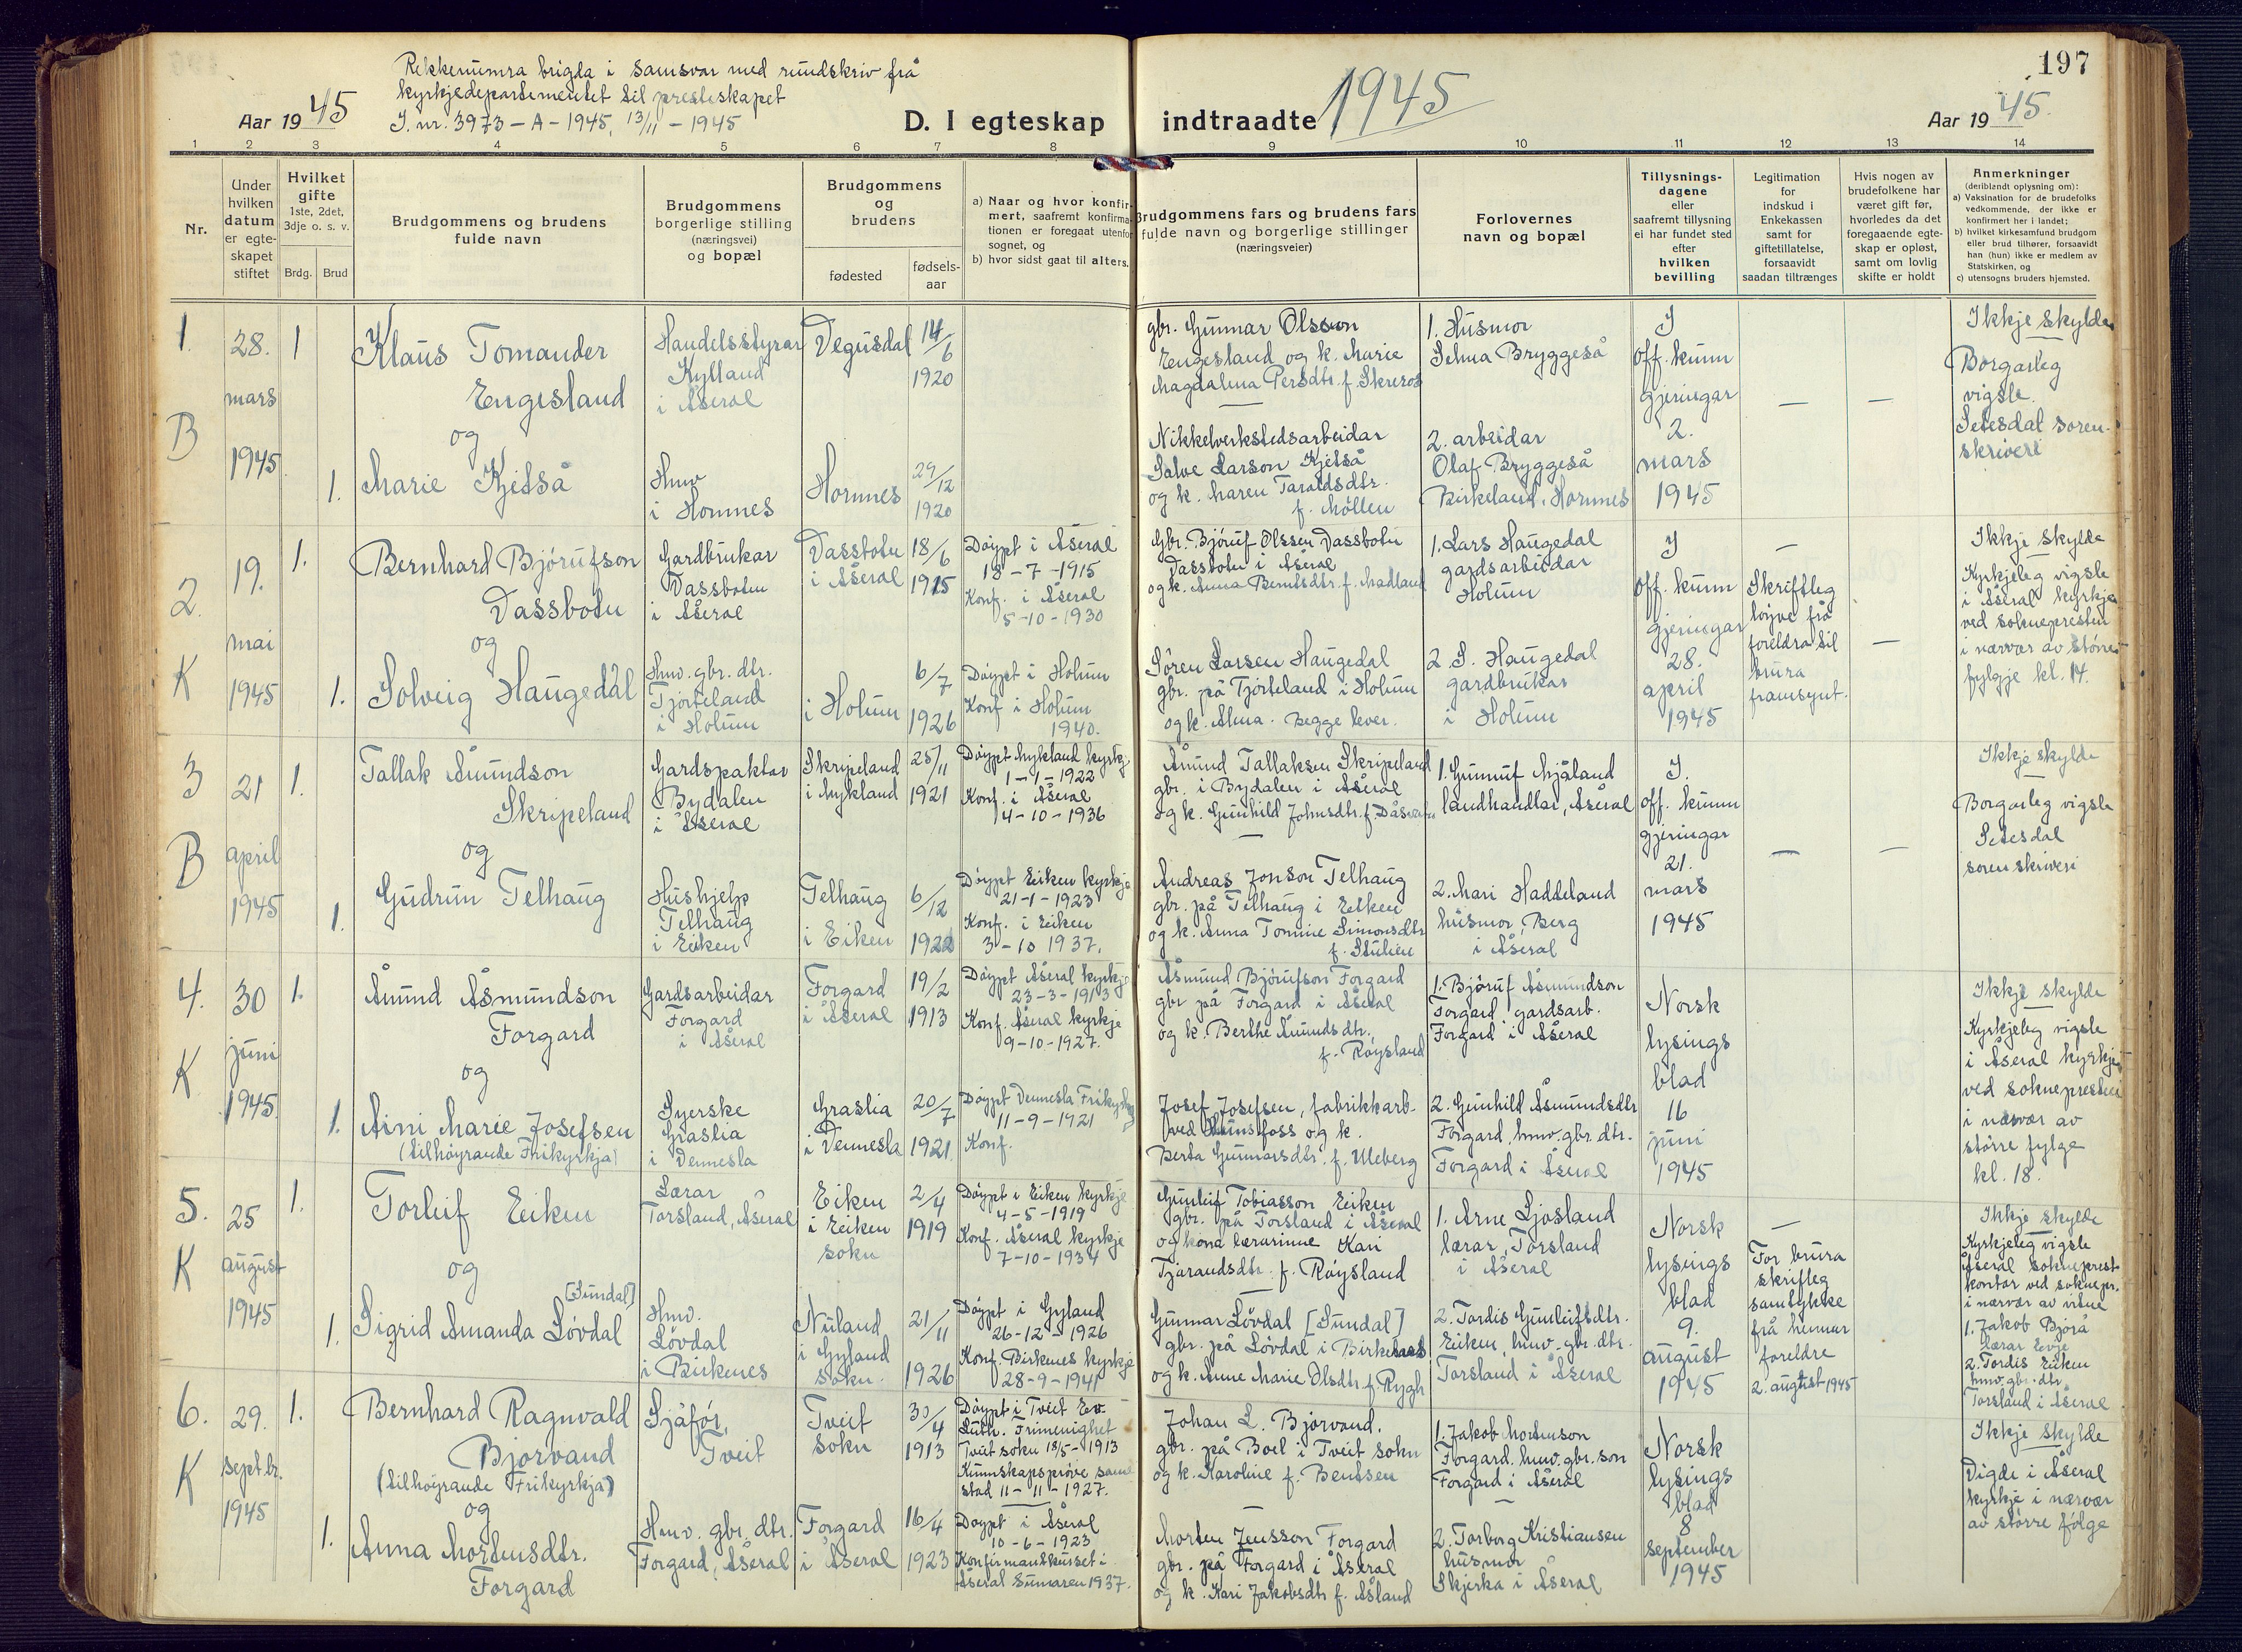 197
Rekkenumra brigda i samsvar med rundskriv frå
kyrkjedepartementet til presteskapet
J. nr. 3973 – A – 1945, 13/11 – 1945
Aar 1945
D. I egteskap indtraadte 1945
Aar 1945.
1 2 3 4 5 6 7 8 9 10 11 12 13 14
Nr.
Under
hvilken
datum
er egte-
skapet
stiftet
Hvilket
gifte
1ste, 2det,
3dje o. s. v.
Brdg. Brud
Brudgommens og brudens
fulde navn
Brudgommens
borgerlige stilling
(næringsvei)
og bopæl
Brudgommens
og
brudens
fødested
fødsels-
aar
a) Naar og hvor konfir-
mert, saafremt konfirma-
tionen er foregaat utenfor
sognet, og
b) hvor sidst gaat til alters.
Brudgommens fars og brudens fars
fulde navn og borgerlige stillinger
(næringsveier)
Forlovernes
navn og bopæl
Tillysnings-
dagene
eller
saafremt tillysning
ei har fundet sted
efter
hvilken
bevilling
Legitimation
for
indskud i
Enkekassen
samt for
giftetillatelse,
forsaavidt
saadan tiltrænges
Hvis nogen av
brudefolkene har
været gift før,
hvorledes da det
foregaaende egte-
skap er opløst,
samt om lovlig
skifte er holdt
Anmerkninger
(deriblandt oplysning om):
a) Vaksination for de brudefolks
vedkommende, der ikke er
konfirmert her i landet;
b) hvilket kirkesamfund brudgom
eller brud tilhører, forsaavidt
han (hun) ikke er medlem av
Statskirken, og
c) utensogns bruders hjemsted.
1.
B
28.
mars
1945.
1
Klaus Tomander
Engesland
og
1. Marie Kjetså
Handelsstyrar
Kylland
i Åseral
Hmv
i Hornnes
Vegusdal
14/6
1920
Hornnes
29/12
1920
gbr. Gunnar Olsson
Engesland og k. Marie
Magdalena Persdtr. f. Skreros
—
Nikkelverkstedsarbeidar
Salve Larson Kjetså
og k. Maren Taraldsdtr.
f. Mollen
1. Husmor
Selma Bryggeså
2. arbeidar
Olaf Bryggeså
Birkeland, Hornnes
I
off. kunn
gjeringar
2.
mars
1945
—
—
Ikkje skylde
Borgarleg
vigsle.
Setesdal soren-
skriveri
2.
K
19.
mai
1945
1.
Bernhard Bjørufson
Dassbotn
og
1. Solveig Haugedal
Gardbrukar
Dassbotn
i Åseral
Hmv. gbr. dtr.
Tjorteland
i Holum
Dassbotn
i Åseral
18/6
1915
i Holum
6/7
1926
Døypt i Åseral
18-7-1915
Konf. i Åseral
5-10-1930
Døypt i Holum
Konf i Holum
1940.
Gbr. Bjøruf Olssen Dassbotn
Dassbotn i Åseral
og k. Anna Berntsdtr. f. Madland
Søren Larsen Haugedal
gbr. på Tjorteland i Holum
og k. Alma. Begge lever.
1. Lars Haugedal
gardsarbeidar
Holum
2. S. Haugedal
gardbrukar
i Holum
I
off. kunn
gjeringar
28.
april
1945
—
Skriftleg
løyve frå
foreldra til
brura
framsynt.
—
Ikkje skylde
Kyrkjeleg vigsle
i Åseral kyrkje
ved soknepresten
i nærvær av større
fylgje kl. 14.
3
B
21
april
1945
1.
Tallak Åmundson
Skripeland
og
1. Gudrun Telhaug
Gardspaktar
Bydalen
i Åseral
Hushjelp
Telhaug
i Eiken
Skripeland
i Mykland
25/11
1921
Telhaug
i Eiken
6/12
1922
Døypt Mykland kyrkje
1-1-1922
Konf. i Åseral
4-10-1936
Døypt Eiken kyrkje
21-1-1923
Konf. i Eiken
3-10 1937.
Åmund Tallaksen Skripeland
gbr. i Bydalen i Åseral
og k. Gunhild Johnsdtr. f.
—
Andreas Jonson Telhaug
gbr. på Telhaug i Eiken
og k. Anna Tomine Simonsdtr
f. Stulien
1. Gunnuf Mjåland
landhandlar, Åseral
2. Mari Haddeland
husmor, Berg
i Åseral
I.
off. kunn
gjeringar
21.
mars
1945
—
—
Ikkje skylde
Borgarleg vigsle
Setesdal
sorenskriveri
4.
K
30
juni
1945
1.
Åmund Åsmundson
Forgard
og
1. Arni Marie Josefsen
(tilhøyrande Frikyrkja)
Gardsarbeidar
Forgard
i Åseral
Syerske
Graslia
i Vennesla
Forgard
i Åseral
19/2
1913
Graslia
i Vennesla
20/7
1921
Døypt Åseral kyrkje
23-3-1913
Konf. Åseral kyrkje
9-10-1927.
Døypt Vennesla Frikyrkje
11-9-1921
Konf.
Åsmund Bjørufson Forgard
gbr på Forgard i Åseral
og k. Berthe Åmundsdtr.
f. Røysland
Josef Josefsen, fabrikkarb.
ved Hunsfoss og k.
Berta Gunnarsdtr. f. Uleberg
1. Bjøruf Åsmundson
Forgard gardsarb.
Forgard i Åseral
2. Gunhild Åsmundsdtr
Forgard, hmv. gbr. dtr.
Forgard i Åseral
Norsk
lysings
blad
16
juni
1945
Ikkje skylde
Kyrkjeleg vigsle
i Åseral kyrkje
ved soknepresten
i nærvær av
større fylge
kl. 18.
5.
K
25
august
1945
1.
Torleif Eiken
og
[Sundal]
1. Sigrid Amanda Løvdal
Lærar
Torsland, Åseral
Hmv.
Løvdal
i Birkenes
Eiken
i Eiken
sokn
2/4
1919
Nuland
i Gyland
sokn.
21/11
1926
Døypt i Eiken kyrkje
4-5-1919
Konf. Åseral kyrkje
7-10-1934
Døypt i Gyland
26-12-1926
Konf. Birkenes kyrkje
28-9-1941
Gunleif Tobiasson Eiken
gbr. på Torsland i Åseral
og kona lærarinne Kari
Tjørandsdtr. f. Røysland
—
Gunnar Løvdal [Sundal]
gbr. på Løvdal i Birkenes
og k. Anne Marie Olsdtr f. Rygh
1. Arne Ljosland
lærar, Torsland
i Åseral
2. Tordis Gunleifsdtr.
Eiken, hmv. gbr. dtr.
Torsland i Åseral
Norsk
lysings
blad
9.
august
1945
—
For brura
skrifleg
samtykke
frå hennar
foreldre
2. august 1945
Ikkje skylde
Kyrkjeleg vigsle
Åseral sokneprest
kontor ved soknepr.
i nærvær av vitne
1. Jakob Bjorå
lærar Evje
2. Tordis Eiken
hmv. gbr. dtr.
Torsland i Åseral
6.
K
29.
septbr.
1945
1.
Bernhard Ragnvald
Bjorvand
(tilhøyrande Frikyrkja)
og
1. Anna Mortensdtr.
Forgard
Sjåfør,
Tveit
Hmv. gbr. dtr.
Forgard, Åseral
Tveit
sokn
30/4
1913
Forgard
i Åseral
16/4
1923
Døypt i Tveit Ev.
Luth. Frimenighet
Tveit sokn 18/5-1913
Kunnskapsprøve same
stad 11-11-1927.
Døypt i Åseral
10-6-1923
Konfirmantkurset i
Åseral sumaren 1937.
Johan L. Bjorvand.
gbr. på Boel i Tveit sokn
og k. Karoline f. Bentsen
—
Morten Jensson Forgard
gbr. på Forgard i Åseral
og k. Kari Jakobsdtr f. Åsland
1. Jakob Mortenson
Forgard. hmv. gbr. son
Forgard i Åseral
—
2. Torborg Kristiansen
husmor
Skjerka i Åseral
Norsk
lysings
blad
8
september
1945
Ikkje skylde
Vigde i Åseral
kyrkje i nærvær
av større følge